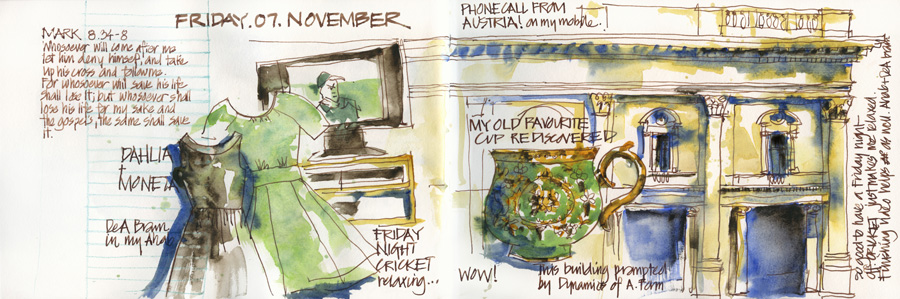 FRIDAY. 07. NOVEMBER
MARK 8.34-8
Whosoever will come after me
let him deny himself, and take
up his cross and follow me.
For whosoever will save his life
shall lose it; but whosoever shall
lose his life for my sake and
the gospel's, the same shall save
it.
DAHLIA
+
MONETA
in my
FRIDAY
NIGHT
CRICKET
relaxing...
PHONECALL FROM
AUSTRIA! on my mobile.
MY OLD FAVOURITE
CUP REDISCOVERED
WOW!
this building prompted
by Dynamics of A. Form
so good to have a Friday night
off. CRICKET just makes me relaxed
Finishing
helps as well